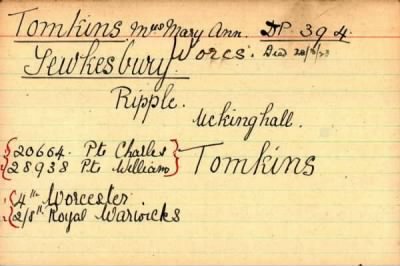 Tomkins Mrs Mary Ann. DP. 394.
Tewkesbury Worcs. Died 20/8/23
Ripple.
Uckinghall.
20664. Pt Charles
28938 Pt William Tomkins
4th Worcester.
2/8th Royal Warwicks